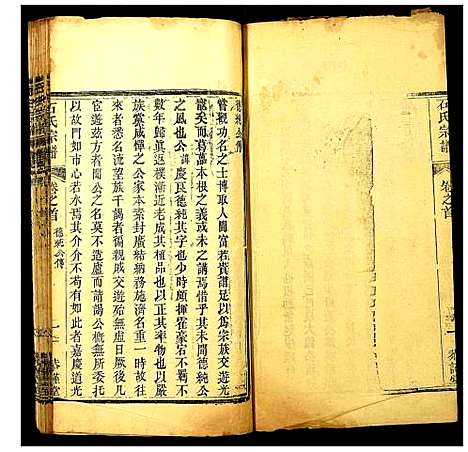 德純公傳
嘗觀功名之士博取人間富若貴譜足以爲宗族交遊光
寵矣而葛藟本根之義或未之講焉惜乎其未聞德純公
之風也公諱慶民德純其字也少時頗揮霍豪宕不羈
數年歸真返樸漸近老成其植品也正其率物也以嚴
族黨咸憚之公家本素封廣結納務施濟名重一時故往
來者悉名流族千謁者褐親戚交遊殆無虛日厥後凡
宦遊茲方者聞公之名莫不造廬而請謁公概委
以故門如市心若水焉其介介不苟有如此者嘉慶道光
石氏宗譜
卷之首
德純公傳
石氏宗譜
卷之首